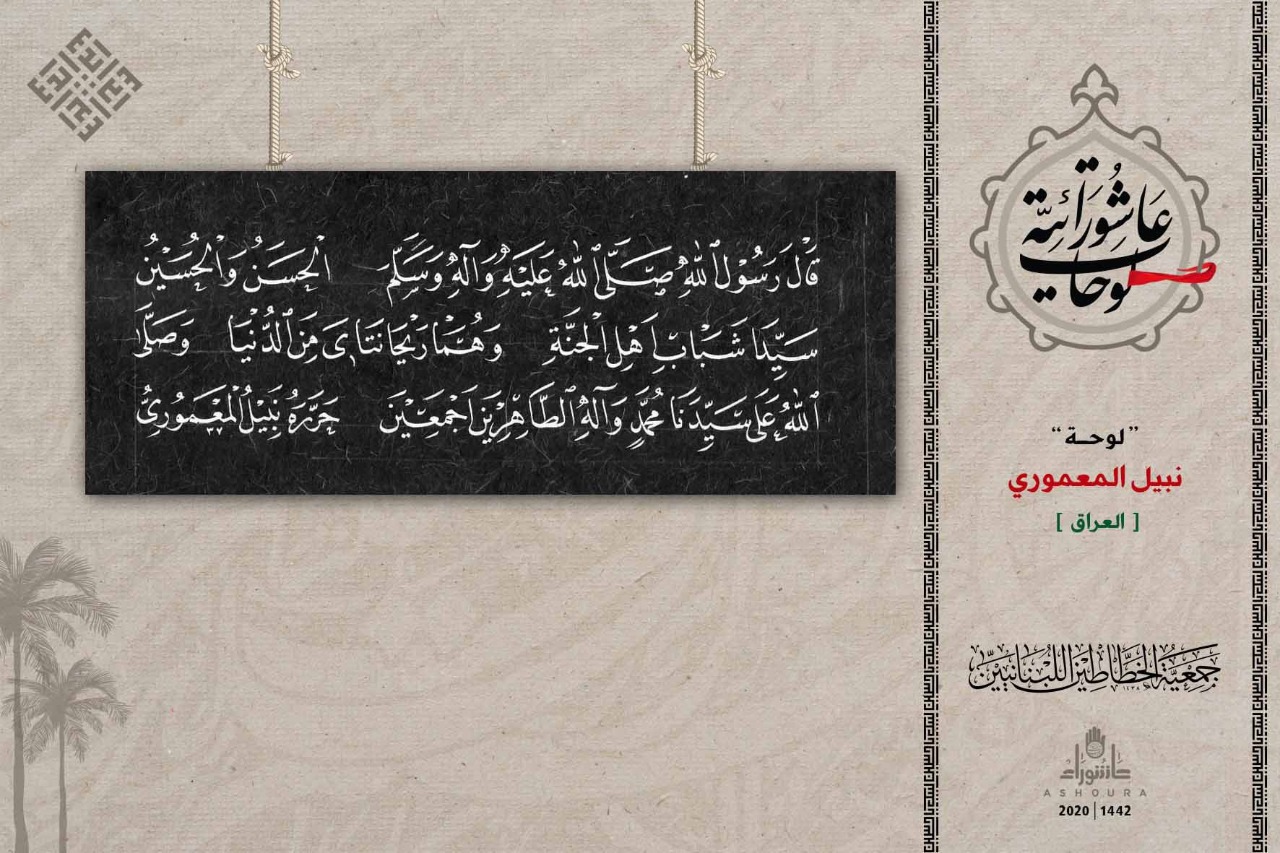 قَالَ رَسُوْلُ اللهِ صَلَّى اللهُ عَلَيْهِ وَآلِهِ وَسَلَّمَ الْحَسَنُ وَالْحُسَيْنُ
سَيِّدَا شَبَابِ اَهْلِ الْجَنَّةِ وَهُمَا رَيْحَانَتَايَ مِنَ الدُّنْيَا وَصَلَّى
اللهُ عَلَى سَيِّدِنَا مُحَمَّدٍ وَآلِهِ الطَّاهِرِيْنَ اَجْمَعِيْنَ حَرَّرَهُ نَبِيْلُ الْمَعْمُورِيُّ
لوحات
عَاشُورَائيَّة
"لوحـة"
نبيل المعموري
[ العراق ]
جَمْعِيَّةُ الْخَطَّاطِيْنَ اللُّبْنَانِيِّيْنَ
١٤٣٨
عاشوراء
ASHOURA
2020 | 1442